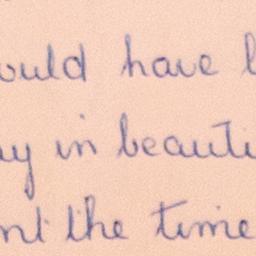 ould have
in beauti
the time